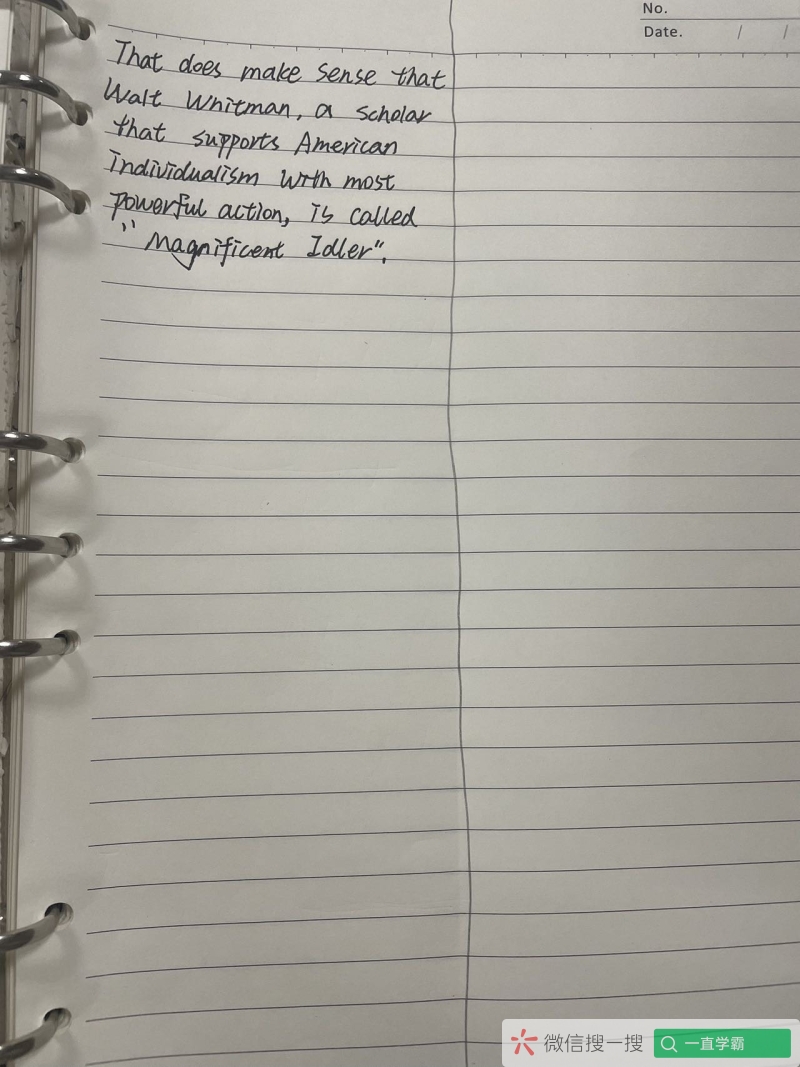 No.
Date. / /
That does make sense that
Walt Whitman, a scholar
that supports American
individualism with most
powerful action, is called
"Magnificent Idler".
微信搜一搜
一直学霸